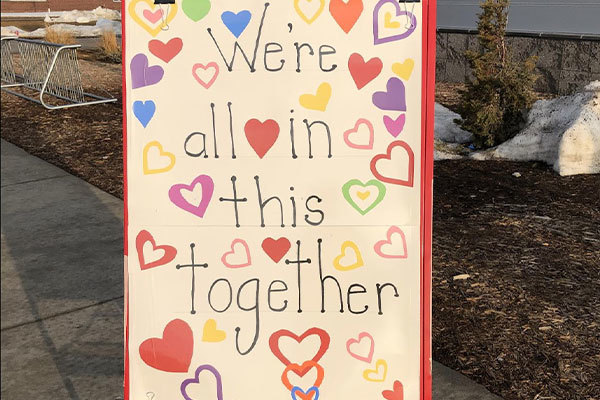 We're
all in
this
together